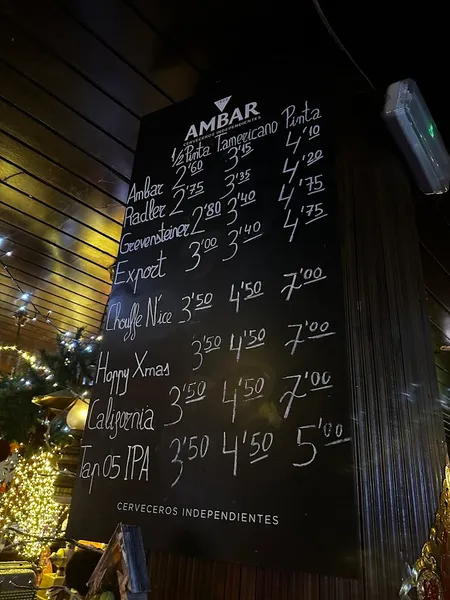 AMBAR
CERVECEROS INDEPENDIENTES
1/2 Pinta Tamericano Pinta
Ambar 2'60 3'15 4'10
Radler 2'75 3'35 4'20
Grevensteiner 2'80 3'40 4'75
Export 3'00 3'40 4'75
Chouffe N'ice 3'50 4'50 7'00
Hoppy Xmas 3'50 4'50 7'00
California 3'50 4'50 7'00
Tap 05 IPA 3'50 4'50 5'00
CERVECEROS INDEPENDIENTES